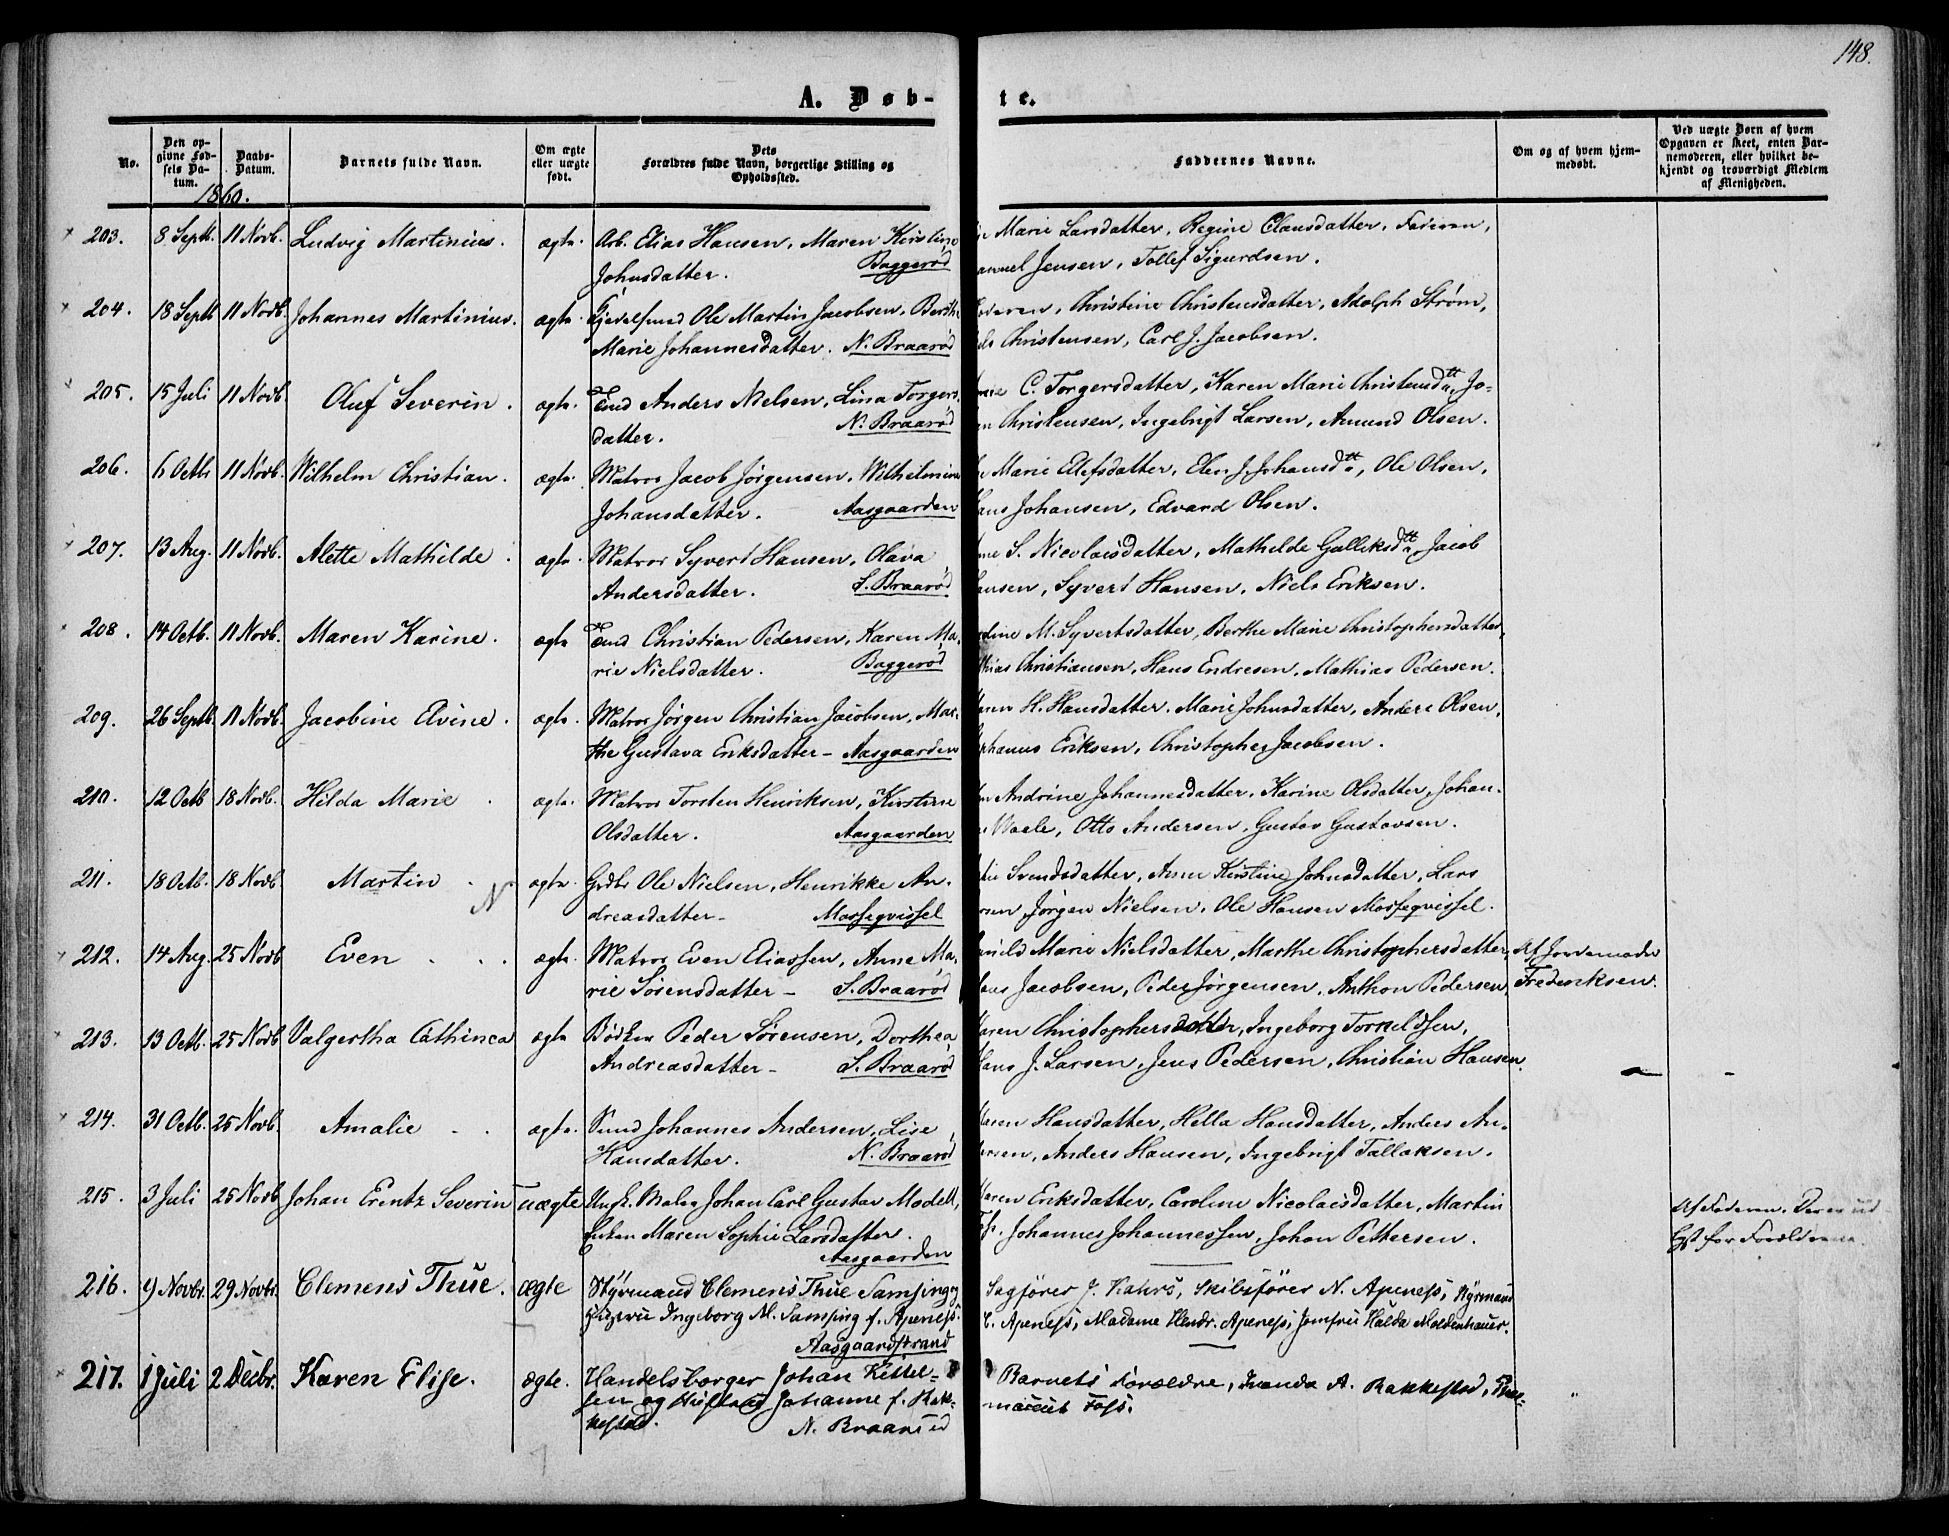 148.
A. Døb-
te.
No.
Den op-
givne Fød-
sels Da-
tum.
Daabs-
Datum.
Barnets fulde Navn.
Om ægte
eller uægte
født.
Dets
Forældres fulde Navn, borgerlige Stilling og
Opholdssted.
Faddernes Navne.
Om og af hvem hjem-
medøbt.
Ved uægte Børn af hvem
Opgaven er skeet, enten Bar-
nemoderen, eller hvilket be-
kjendt og troværdigt Medlem
af Menigheden.
1860.
203. 8 Septb. 11 Novb. Ludvig Martinius. ægte. Arb. Elias Hansen, Maren Kirstine
Johnsdatter. Baggerød
Marie Larsdatter, Regine Clausdatter, Faderen,
amuel Jensen, Tollef Sigurdsen.
204. 18 Septb 11 Novb. Johannes Martinius. ægte. Ole Martin Jacobsen, Berthe
Marie Johannesdatter. N. Braarød
aderen, Christine Christensdatter, Adolph Strøm,
els Christensen, Carl J. Jacobsen.
205. 15 Juli 11 Novb. Oluf Severin. ægte. Tømd Anders Nielsen, Lina Torgers
datter. N. Braarød
C. Torgersdatter, Karen Marie Christensdtt, Jo-
Christensen, Ingebrigt Larsen, Amund Olsen.
206. 6 Octb 11 Novb. Wilhelm Christian. ægte. Matros Jacob Jørgensen, Wilhelmine
Johansdatter. Aasgaarden
Marie Elefsdatter, Elen J. Johansdtt, Ole Olsen,
ans Johansen, Edvard Olsen.
207. 13 Aug. 11 Novb. Alette Mathilde. ægte. Matros Syvert Hansen, Olava
Andersdatter. S. Braarød
S. Nicolaisdatter, Mathilde Gulliksdtt, Jacob
ansen, Syvert Hansen, Niels Eriksen.
208. 14 Octb. 11 Novb. Maren Karine. ægte Tømd Christian Pedersen, Karen Ma-
rie Nielsdatter. Baggerød
dine M. Syvertsdatter, Berthe Marie Christophersdatter,
thias Christiansen, Hans Endresen, Mathias Pedersen.
209. 26 Septb. 11 Novb. Jacobine Elvine. ægte. Matros Jørgen Christian Jacobsen, Mar-
the Gustava Eriksdatter - Aasgaarden
aren H. Hansdatter, Marie Johnsdatter, Anders Olsen,
phanus Eriksen, Christopher Jacobsen.
210. 12 Octb 18 Novb. Hilda Marie. ægte. Matros Torsten Henriksen, Kirstine
Olsdatter. Aasgaarden
Andrine Johannesdatter, Karine Olsdatter, Johan-
Waale, Otto Andersen, Gustav Gustavsen.
211. 18 Octb. 18 Novb Martin. ægte. Grdbr Ole Nielsen, Henrikke An-
dreasdatter - Mossegvissel
Svendsdatter, Anne Kirstine Johnsdatter, Lars
rsen, Jørgen Nielsen, Ole Hansen Mossegvissel.
212. 14 Aug. 25 Novb Even. ægte. Matros Even Eliassen, Anne Ma-
rie Sørensdatter - S. Braarød
Marie Nielsdatter, Marthe Christophersdatter,
ans Jacobsen, Peder Jørgensen, Anthon Pedersen,
Af Jordemoder
Frederiksen.
213. 13 Octb. 25 Novb Valgertha Cathinca ægte Bødker Peder Sørensen, Dorthea
Andreasdatter - S. Braarød
aren Christophersdatter, Ingeborg Torkeldsen,
ans J. Larsen, Jens Pedersen, Christian Hansen.
214. 31 Octb. 25 Novb. Amalie. ægte. Tømd Johannes Andersen, Lise
Hansdatter. N. Braarød
aren Hansdatter, Hella Hansdatter, Anders An-
ersen, Anders Hansen, Ingebrigt Tallaksen.
215. 3 Juli 25 Novb Johan Erentz Severin uægte Ungk. Maler Johan Carl Gustav Modell,
Enken Maren Sophie Larsdatter.
Aasgaarden
aren Eriksdatter, Caroline Nicolaisdatter, Martin
Johannes Johannessen, Johan Pettersen.
Af Faderen. Der er ud
Forældrene.
216. 9 Novbr. 29 Novbr. Clemens Thue. ægte Styrmand Clemens Thue Samsing og
Hustru Ingeborg M. Samsing f. Apeness.
Aasgaardstrand
Sagfører J. Kahrs, Skibsfører N. Apeness, Styrmand
C. Apeness, Madame Hendr. Apeness, Jomfru Hulda Moldenhauer.
217. 1 Juli 2 Decbr. Karen Elise. ægte. Handelsborger Johan Kittel-
sen og Hustru Johanne f. Rak-
kestad. N. Braarød
Barnets Forældre, A. Rakkestad,
Foss.